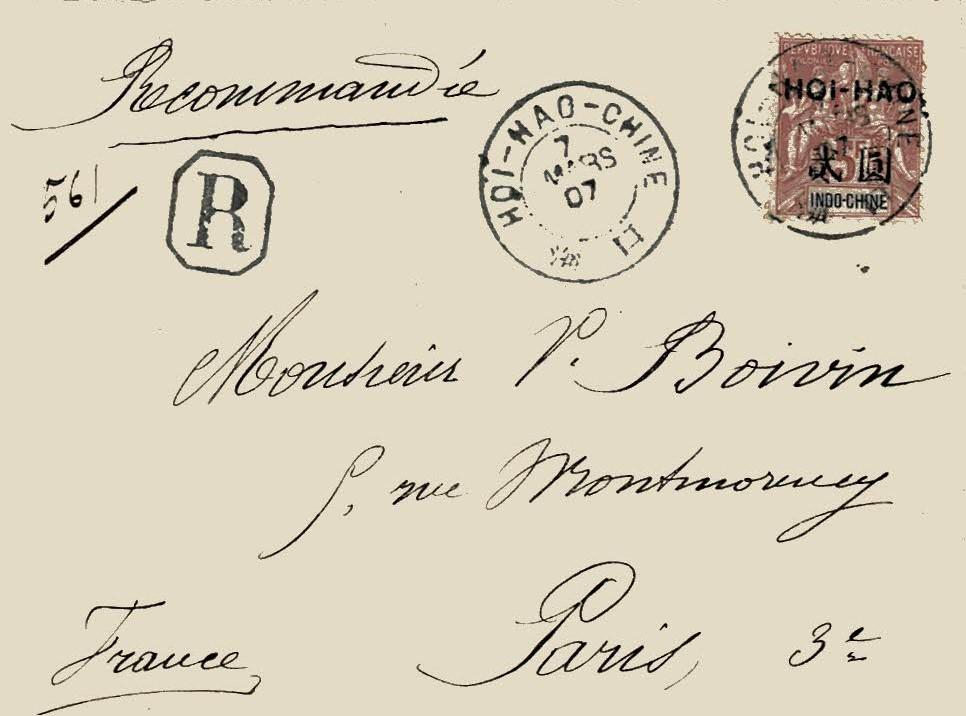 Recommandée
561
R
HOÏ-HAO-CHINE
7
MARS
07
REPVBLIQVE FRANÇAISE
HOI-HAO
貳圓
5F
INDO-CHINE
Monsieur P. Boivin
5, rue Montmorency
Paris, 3e
France